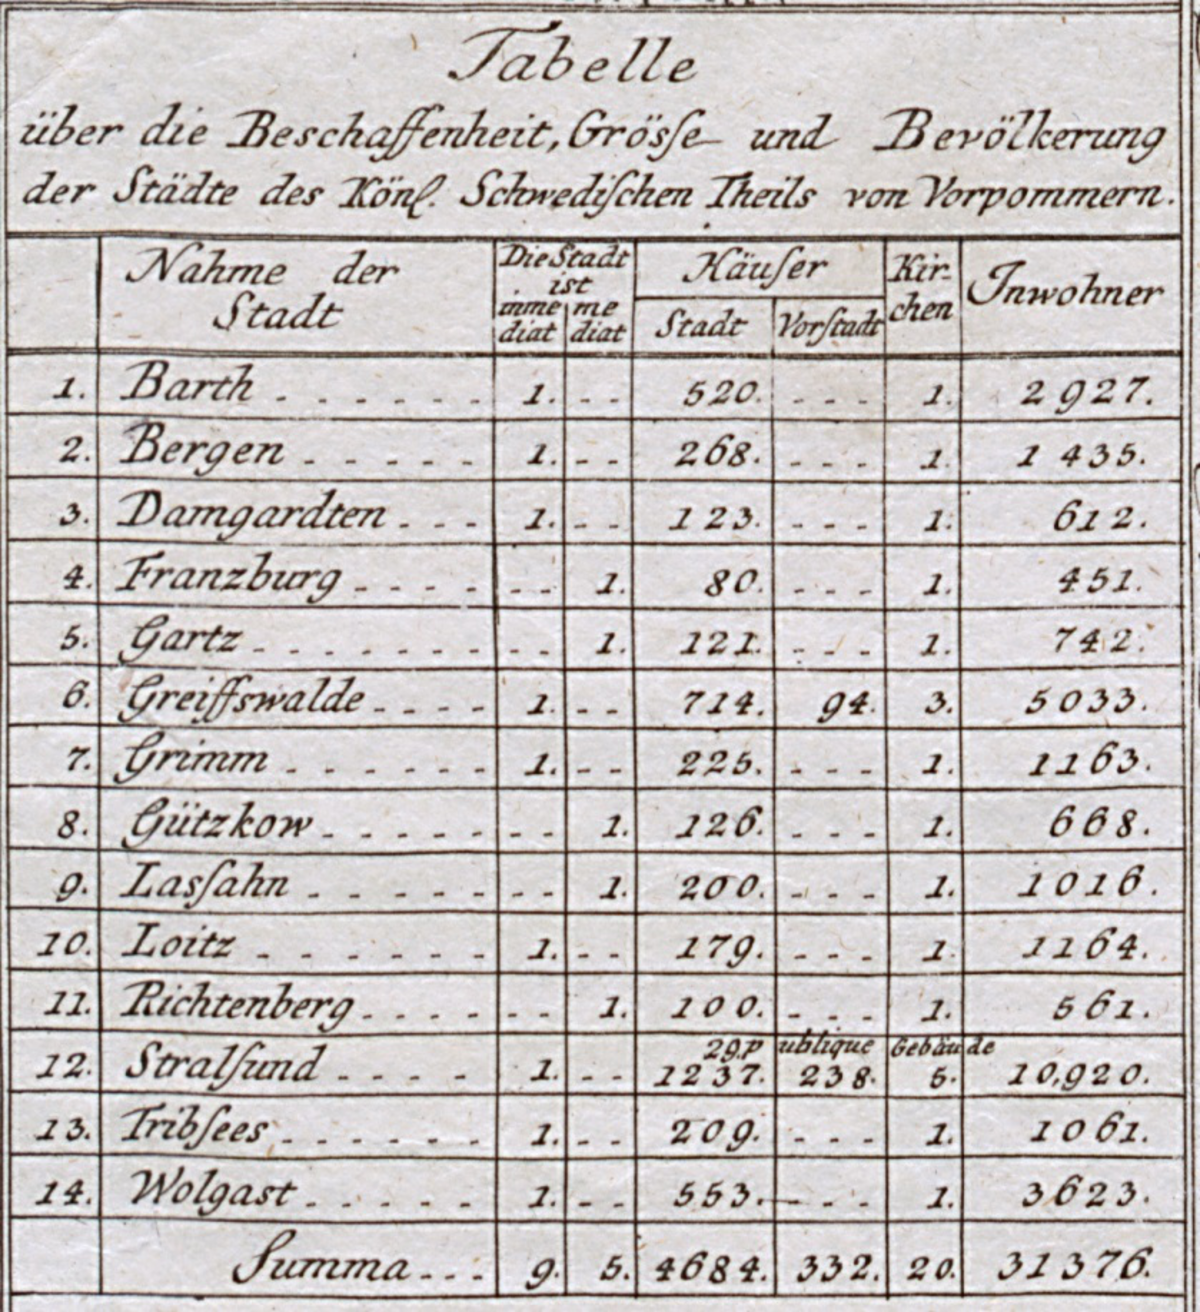 Tabelle
über die Beschaffenheit, Grösſe und Bevölkerung
der Städte des Könl. Schwediſchen Theils von Vorpommern.
Nahme der Stadt Die Stadt ist imme diat me diat Häuſer Stadt Vorſtadt Kir- chen Inwohner
1. Barth - - - - - - 1. - - 520. - - - 1. 2927.
2. Bergen - - - - - 1. - - 268. - - - 1. 1435.
3. Damgardten - - - 1. - - 123. - - - 1. 612.
4. Franzburg - - - - - - 1. 80. - - - 1. 451.
5. Gartz - - - - - - - - - 1. 121. - - - 1. 742.
6. Greiffswalde - - - - 1. - - 714. 94. 3. 5033.
7. Grimm - - - - - - 1. - - 225. - - - 1. 1163.
8. Gützkow - - - - - - - - 1. 126. - - - 1. 668.
9. Lasſahn - - - - - - - - 1. 200. - - - 1. 1016.
10. Loitz - - - - - - - 1. - - 179. - - - 1. 1164.
11. Richtenberg - - - - - - 1. 100. - - - 1. 561.
29. publique Gebäude
12. Stralſund - - - - 1. - - 1237. 238. 5. 10,920.
13. Tribſees - - - - - - 1. - - 209. - - - 1. 1061.
14. Wolgast - - - - - 1. - - 553. - - - 1. 3623.
Summa - - - 9. 5. 4684. 332. 20. 31376.